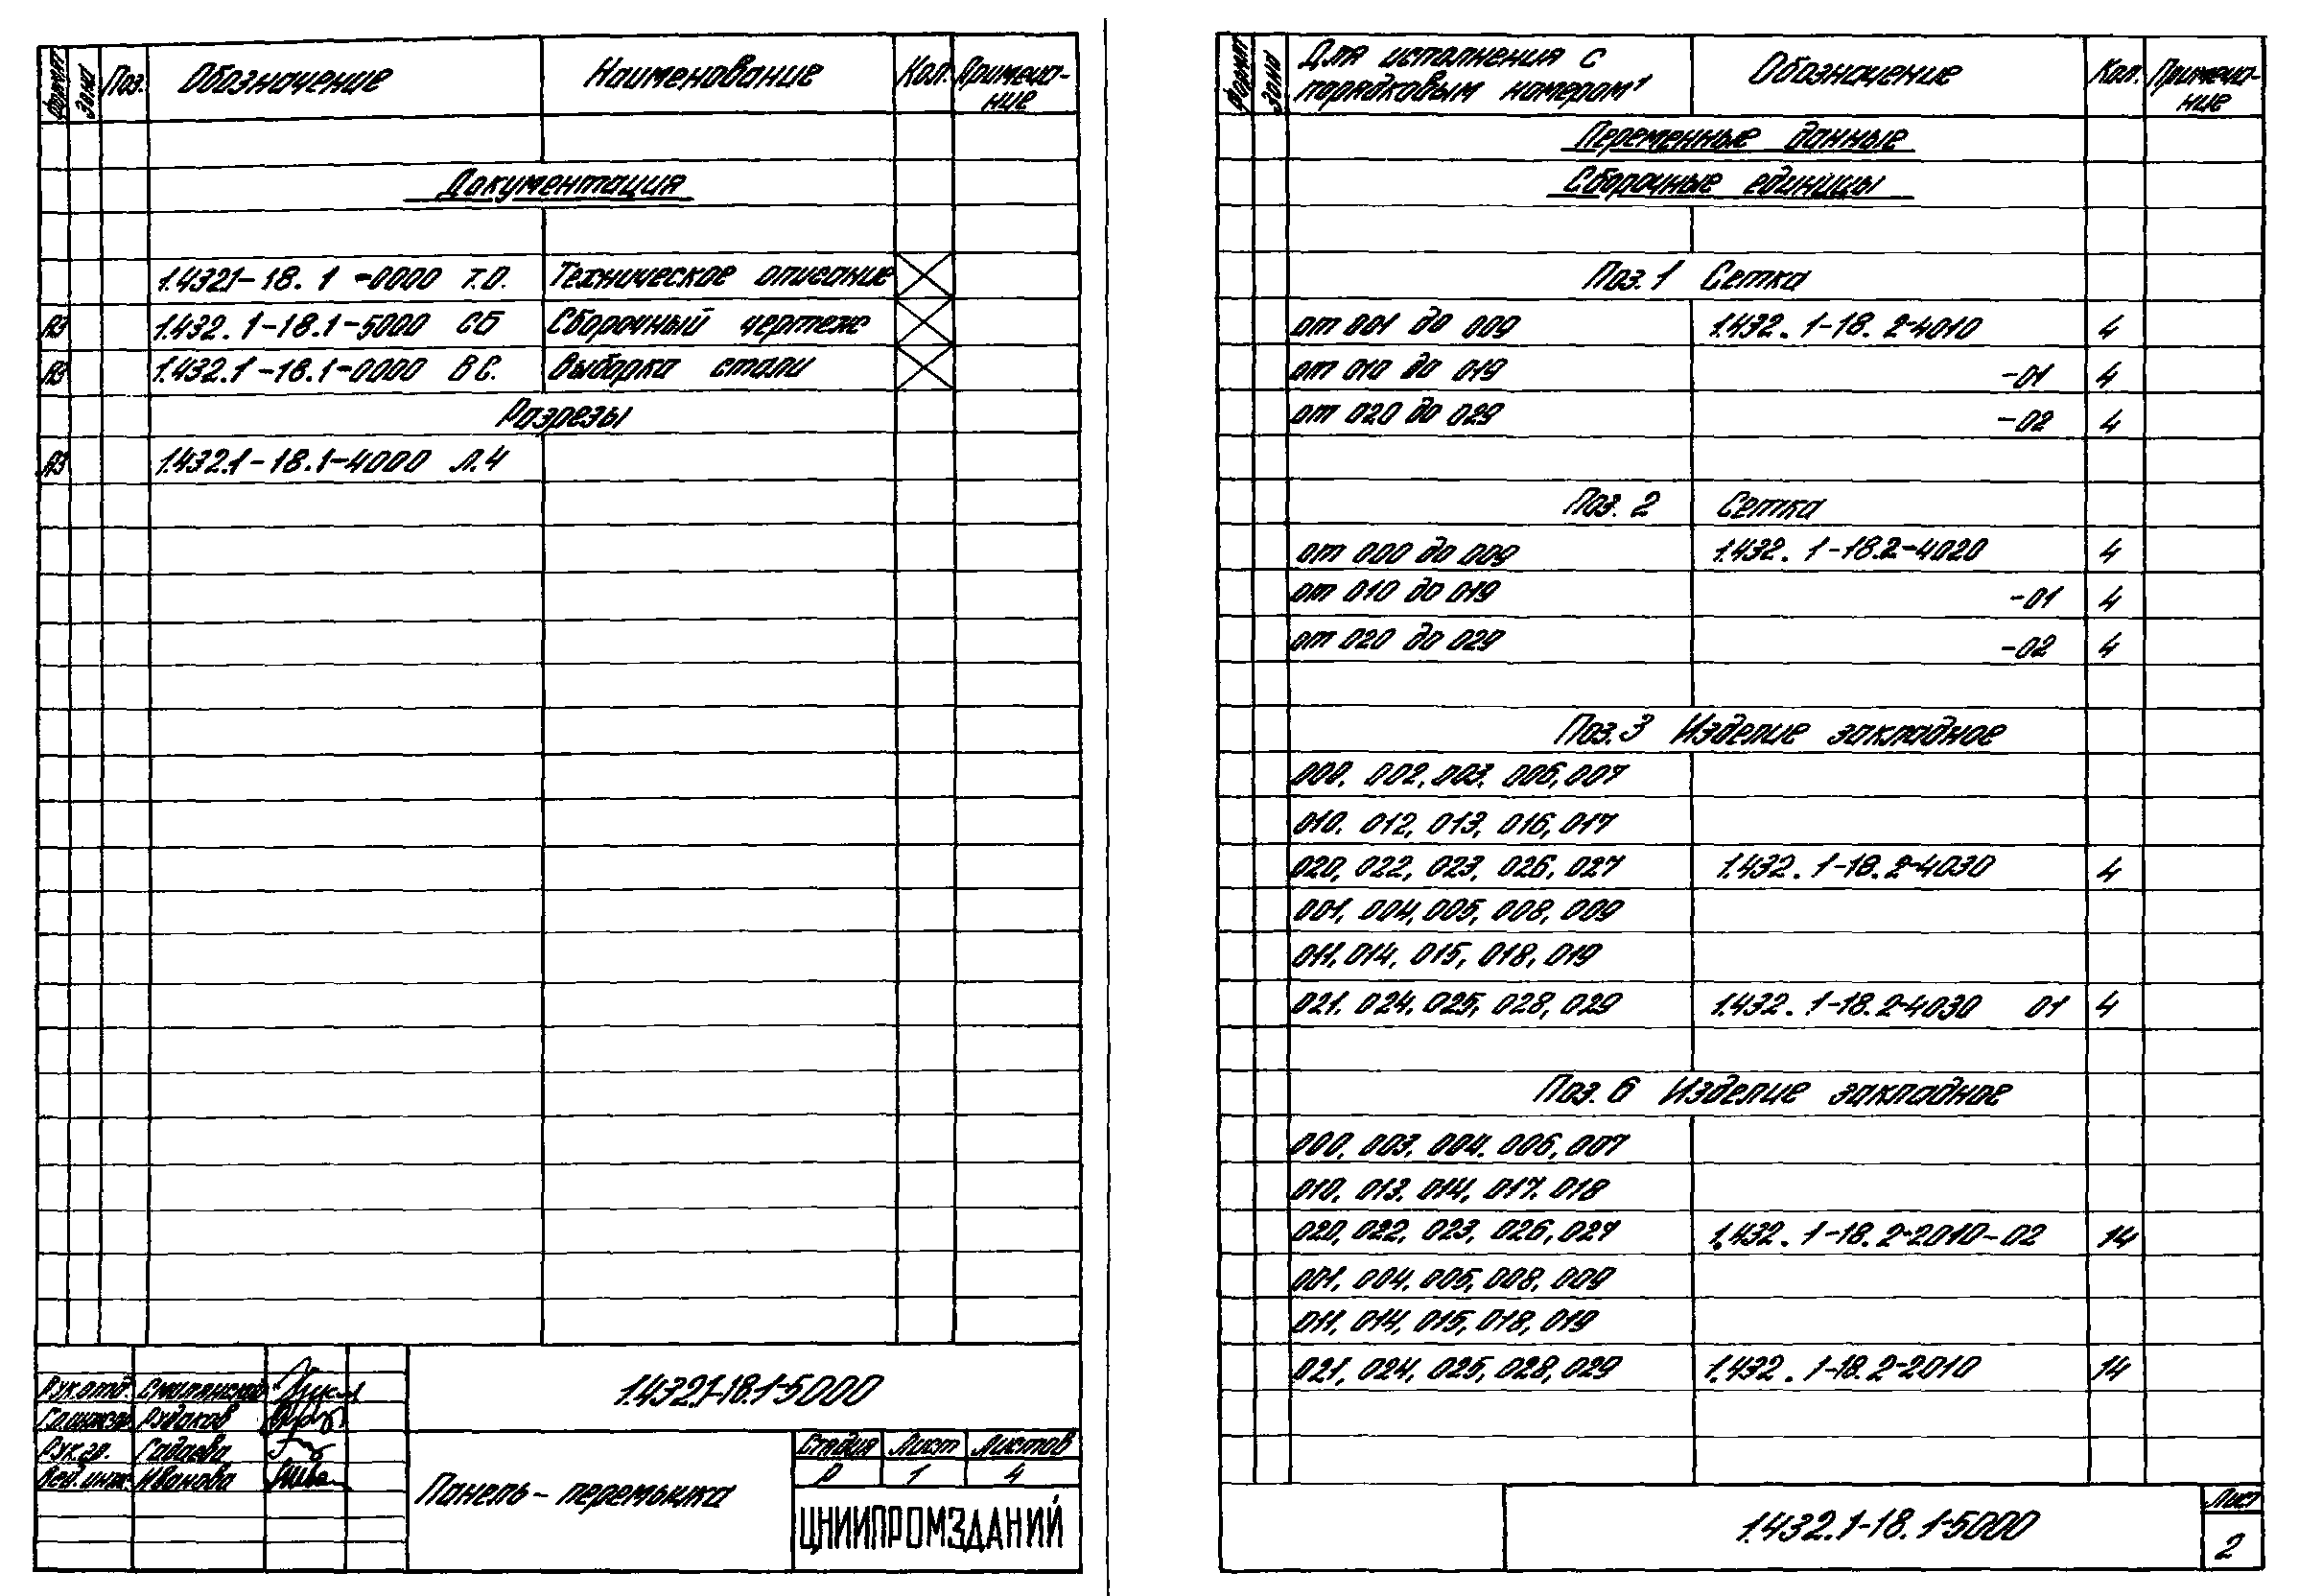 Формат
Зона
Поз.
Обозначение
Наименование
Кол.
Примеча-
ние
Документация
1.4321-18. 1 -0000 т.о.
Техническое описание
А3
1.432. 1-18.1-5000 СБ
Сборочный чертеж
А3
1.432.1-18.1-0000 ВС.
Выборка стали
Разрезы
А3
1.432.1-18.1-4000 л.4
Рук.отд.
Смилянский
Рудаков
Рук.гр.
Гадаева
Вед.инж.
Иванова
1.432.1-18.1-5000
Панель-перемычка
Стадия
Лист
Листов
Р
1
4
ЦНИИПРОМЗДАНИЙ
Формат
Зона
Для исполнения с
порядковым номером
Обозначение
Кол.
Примеча-
ние
Переменные данные
Сборочные единицы
Поз.1 Сетка
от 001 до 009 1.432. 1-18. 2-4010 4
от 010 до 019 -01 4
от 020 до 029 -02 4
Поз. 2 Сетка
от 000 до 009 1.432. 1-18.2-4020 4
от 010 до 019 -01 4
от 020 до 029 -02 4
Поз.3 Изделие закладное
000, 002, 003, 006, 007
010. 012, 013, 016, 017
020, 022, 023, 026, 027 1.432. 1-18. 2-4030 4
001, 004, 005, 008, 009
011, 014, 015, 018, 019
021. 024. 025, 028, 029 1.432. 1-18. 2-4030 01 4
Поз. 6 Изделие закладное
000, 003. 004. 006, 007
010, 013. 014, 017. 018
020, 022, 023, 026, 027 1.432. 1-18. 2-2010-02 14
001, 004. 005, 008, 009
011, 014, 015, 018, 019
021, 024, 025, 028, 029 1.432. 1-18. 2-2010 14
1.432.1-18. 1-5000
Лист
2